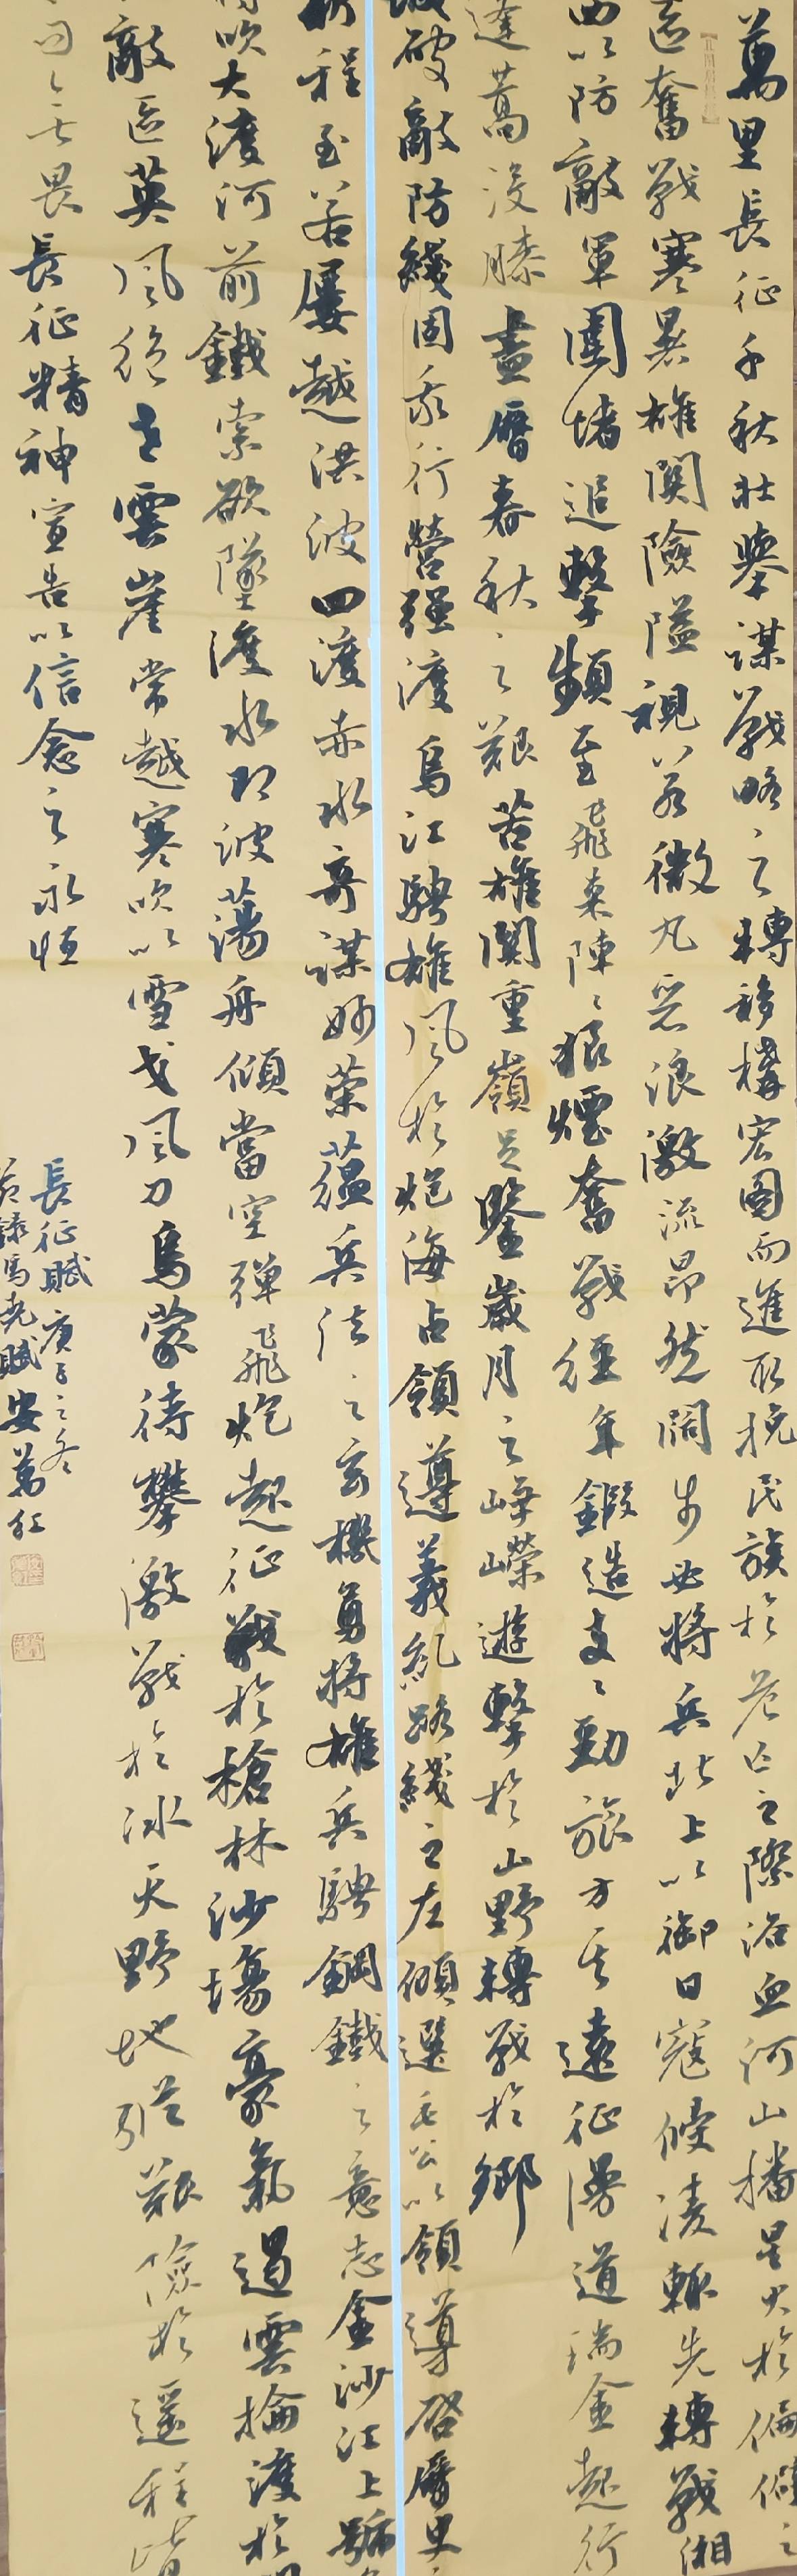 萬里長征千秋壯舉謀戰略之轉移構宏圖而進取挽民族於危亡之際浴血河山播星火於偏僻之
區奮戰寒暑雄關險隘視若微丸惡浪激流昂然闊步要將兵北上以御日寇侵淩輒先轉戰湘
西以防敵軍圍堵追擊頻至飛來陣陣狼煙奮戰經年鍛造支支勁旅方其遠征漫道瑞金起行
蓬蒿沒膝盡曆春秋之艱苦雄關重嶺足鑒歲月之崢嶸遊擊於山野轉戰於鄉
城破敵防綫固我行營強渡烏江騁雄風於炮海占領遵義糾路綫之左傾選毛公以領導啓曆史之
新程至若屢越洪波四渡赤水奇謀妙策蘊兵法之玄機勇將雄兵騁鋼鐵之意志金沙江上號
吹大渡河前鐵索欲墜渡水即波蕩舟傾當空彈飛炮起征戰於槍林沙場豪氣遏雲搶渡於
敵區英風絕世雲崖常越寒吹以雪戈風刀烏蒙待攀激戰於冰天野地歷艱險於遥程皆
因無畏長征精神宣告以信念之永恒
長征賦庚子之冬
若錄馬堯賦安萬紅